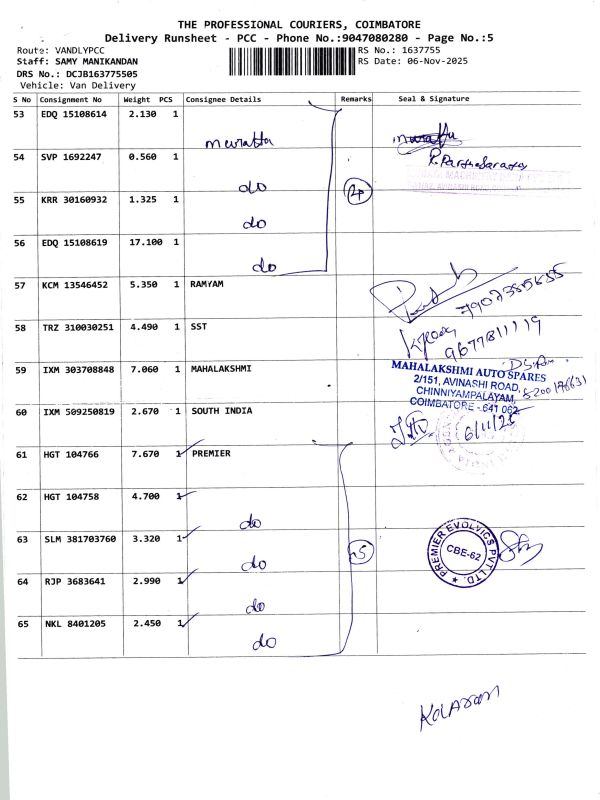 THE PROFESSIONAL COURIERS, COIMBATORE
Delivery Runsheet - PCC - Phone No.:9047080280 - Page No.:5
Route: VANDLYPCC RS No.: 1637755
Staff: SAMY MANIKANDAN RS Date: 06-Nov-2025
DRS No.: DCJB163775505
Vehicle: Van Delivery
S No Consignment No Weight PCS Consignee Details Remarks Seal & Signature
53 EDQ 15108614 2.130 1
54 SVP 1692247 0.560 1
do
55 KRR 30160932 1.325 1
do
56 EDQ 15108619 17.100 1
do
57 KCM 13546452 5.350 1 RAMYAM
58 TRZ 310030251 4.490 1 SST
9677811119
59 IXM 303708848 7.060 1 MAHALAKSHMI
MAHALAKSHMI AUTO SPARES
2/151, AVINASHI ROAD,
CHINNIYAMPALAYAM,
COIMBATORE - 641 062
60 IXM 509250819 2.670 1 SOUTH INDIA
6/11/25
61 HGT 104766 7.670 1 PREMIER
62 HGT 104758 4.700 1
do
63 SLM 381703760 3.320 1
do
PREMIER EVOLVICS PVT. LTD.
CBE-62
64 RJP 3683641 2.990 1
do
65 NKL 8401205 2.450 1
do